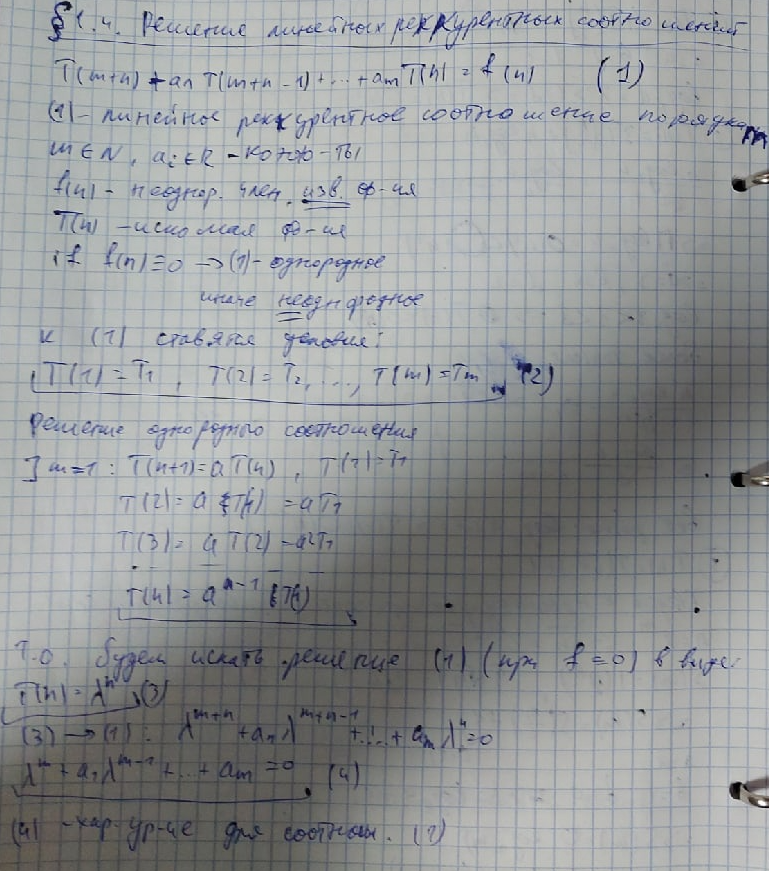 § 1.4. Решение линейных реккурентных соотношений
T(m+n) + a₁T(m+n-1) + ... + aₘT(n) = f(n) (1)
(1) - линейное реккурентное соотношение порядка m
m ∈ N, aᵢ ∈ R - коэф-ты
f(n) - неоднор. член, изв. ф-ия
T(n) - искомая ф-ия
if f(n) ≡ 0 → (1) - однородное
иначе неоднородное
к (1) ставятся условия:
T(1) = T₁, T(2) = T₂, ..., T(m) = Tₘ (2)
Решение однородного соотношения
] m=1 : T(n+1) = aT(n), T(1) = T₁
T(2) = a T(1) = aT₁
T(3) = a T(2) = a²T₁
T(n) = aⁿ⁻¹ T(1)
Т.о. будем искать решение (1) (при f = 0) в виде:
T(n) = λⁿ (3)
(3) → (1) : λᵐ⁺ⁿ + a₁λᵐ⁺ⁿ⁻¹ + ... + aₘλⁿ = 0
λᵐ + a₁λᵐ⁻¹ + ... + aₘ = 0 (4)
(4) - хар. ур-ие для соотнош. (1)